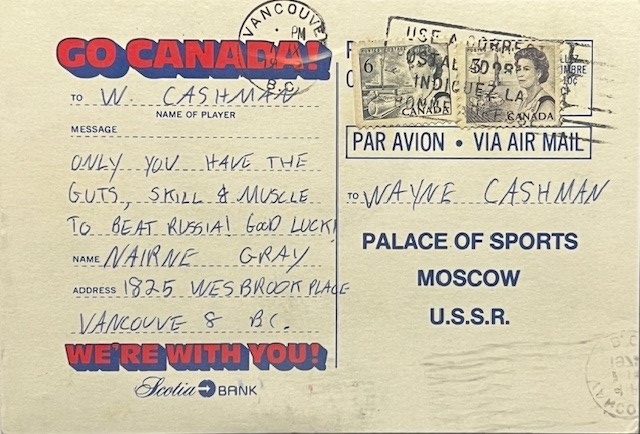 GO CANADA!
TO W. CASHMAN
NAME OF PLAYER
MESSAGE
ONLY YOU HAVE THE
GUTS, SKILL & MUSCLE
TO BEAT RUSSIA! GOOD LUCK!
NAME NAIRNE GRAY
ADDRESS 1825 WESBROOK PLACE
VANCOUVE 8 B.C.
WE'RE WITH YOU!
Scotia BANK
VANCOUVE
PM
B.C.
USE A CORRECT
INDIQUEZ LA
6
CANADA
CANADA
PAR AVION • VIA AIR MAIL
TO WAYNE CASHMAN
PALACE OF SPORTS
MOSCOW
U.S.S.R.